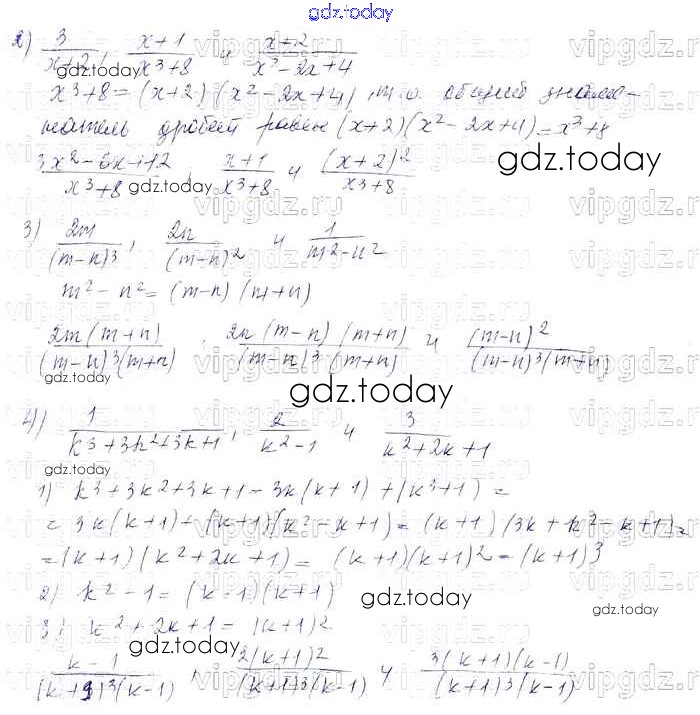 gdz.today
2) 3/(x+2); (x+1)/(x³+8) и (x+2)/(x²-2x+4)
x³+8 = (x+2)(x²-2x+4), т.о. общий знаме-
натель дробей равен (x+2)(x²-2x+4) = x³+8
(3x²-6x+12)/(x³+8); (x+1)/(x³+8) и (x+2)²/(x³+8)
3) 2m/(m-n)³; 2n/(m-n)² и 1/(m²-n²)
m²-n² = (m-n)(m+n)
2m(m+n)/((m-n)³(m+n)); 2n(m-n)(m+n)/((m-n)³(m+n)) и (m-n)²/((m-n)³(m+n))
gdz.today
4) 1/(k³+3k²+3k+1); 2/(k²-1) и 3/(k²+2k+1)
1) k³+3k²+3k+1 = 3k(k+1)+(k³+1) =
= 3k(k+1)+(k+1)(k²-k+1) = (k+1)(3k+k²-k+1) =
= (k+1)(k²+2k+1) = (k+1)(k+1)² = (k+1)³
2) k²-1 = (k-1)(k+1)
3) k²+2k+1 = (k+1)²
(k-1)/((k+1)³(k-1)); 2(k+1)²/((k+1)³(k-1)) и 3(k+1)(k-1)/((k+1)³(k-1))